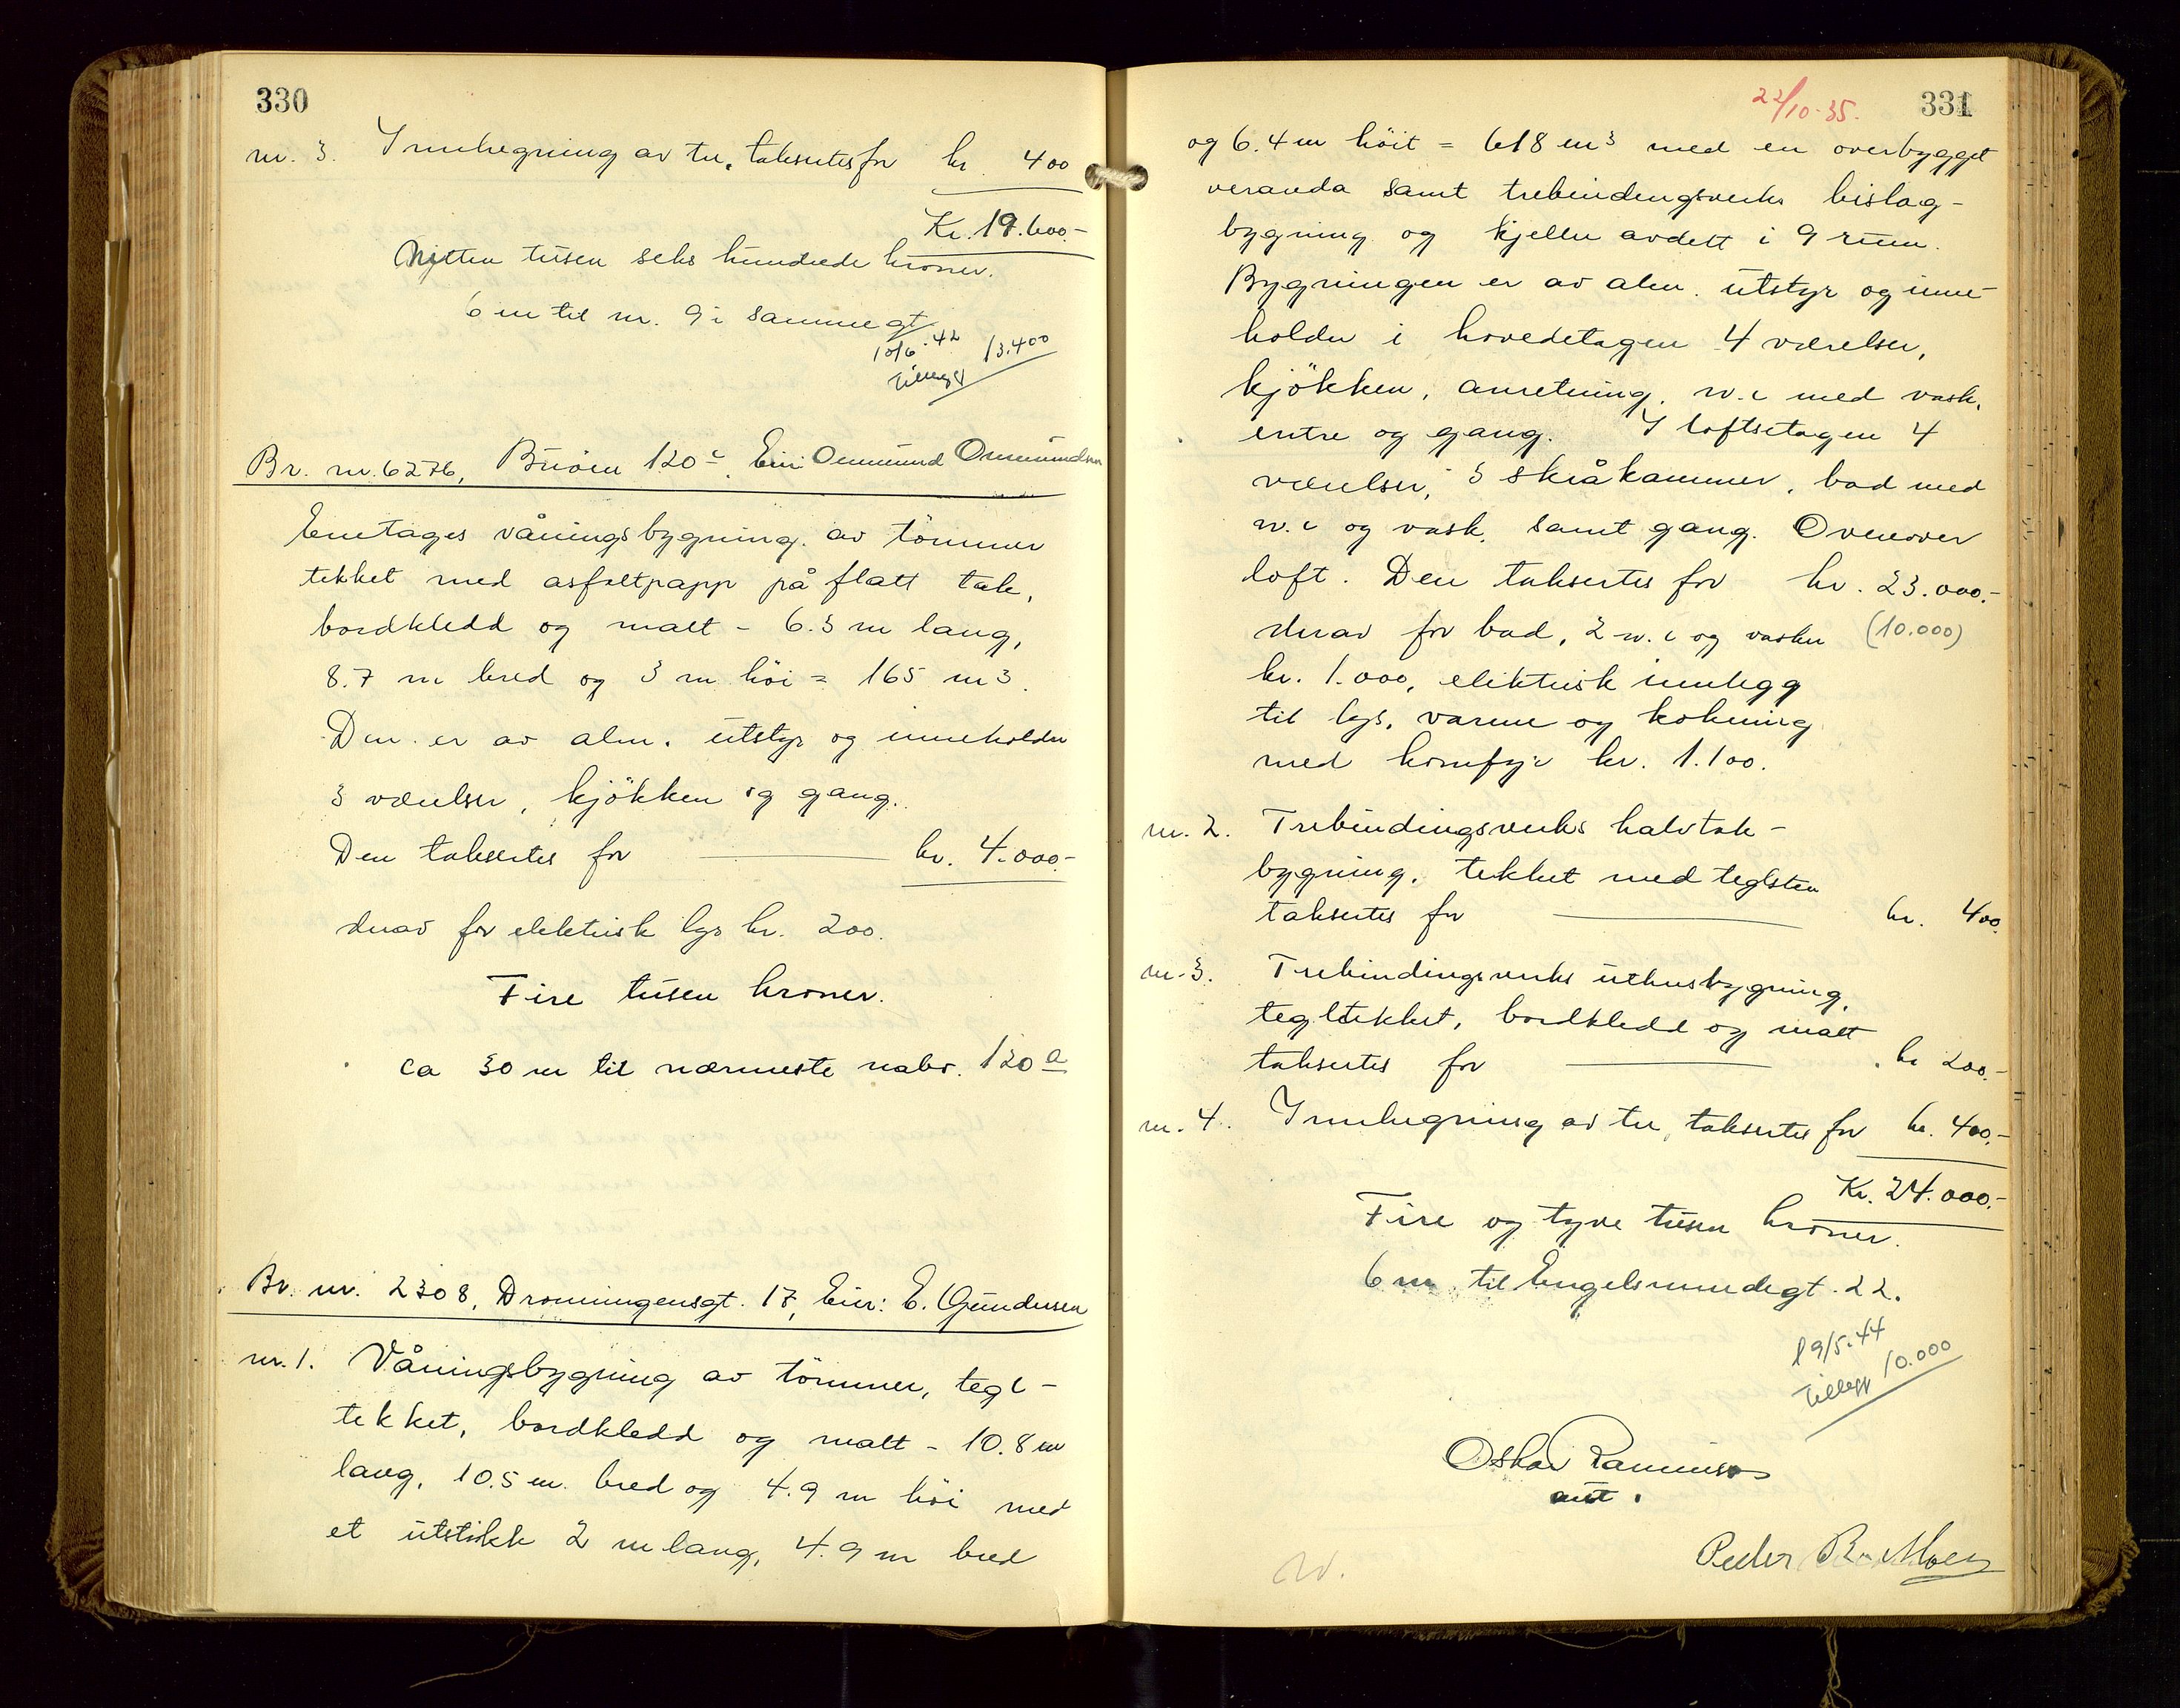 330
nr. 3. Innhegning av tre, taksertes for kr. 400
Kr. 19.600.-
Nitten tusen seks hundrede kroner.
6 m til nr. 9 i samme gt.
10/6-42
Tillegg 13.400
Br. nr. 6276, Buöen 120 c. Eier Ommund Ommundsen
Enetages våningsbygning av tömmer
tekket med asfaltpapp på flatt tak,
bordkledd og malt - 6.3 m lang,
8.7 m bred og 3 m höi = 165 m3.
Den er av alm. utstyr og inneholder
3 værelser, kjökken og gang.
Den taksertes for kr. 4.000.-
derav for elektrisk lys kr. 200.
Fire tusen kroner.
ca 30 m til nærmeste nabo. 120 a
Br. nr. 2308, Dronningensgt. 17, Eier: E. Gundersen
nr. 1. Våningsbygning av tömmer, tegl-
tekket, bordkledd og malt - 10.8 m
lang, 10.5 m. bred og 4.9 m höi med
et utstikk 2 m lang, 4.9 m bred
22/10-35.
331
og 6.4 m höit = 618 m3 med en overbygget
veranda samt trebindingsverks bislag-
bygning og kjeller avdelt i 9 rum.
Bygningen er av alm. utstyr og inne-
holder i hovedetagen 4 værelser,
kjökken, anretning, w.c med vask,
entre og gang. I loftsetagen 4
værelser, 3 skråkammer, bad med
w.c og vask, samt gang. Ovenover
loft. Den taksertes for kr. 23.000.-
derav for bad, 2 w.c og vasker (10.000)
kr. 1.000, elektrisk innlegg
til lys, varme og kokning
med komfyr kr. 1.100.
nr. 2. Trebindingsverks halvtak-
bygning, tekket med teglsten
taksertes for kr. 400.
nr. 3. Trebindingsverks uthusbygning,
tegltekket, bordkledd og malt
taksertes for kr 200.-
nr. 4. Innhegning av tre, taksertes for kr. 400.-
Kr. 24.000.-
Fire og tyve tusen kroner.
6 m til Engelsmindegt. 22.
19/5-44
Tillegg 10.000
Oskar
ant.
Peder R. Moen